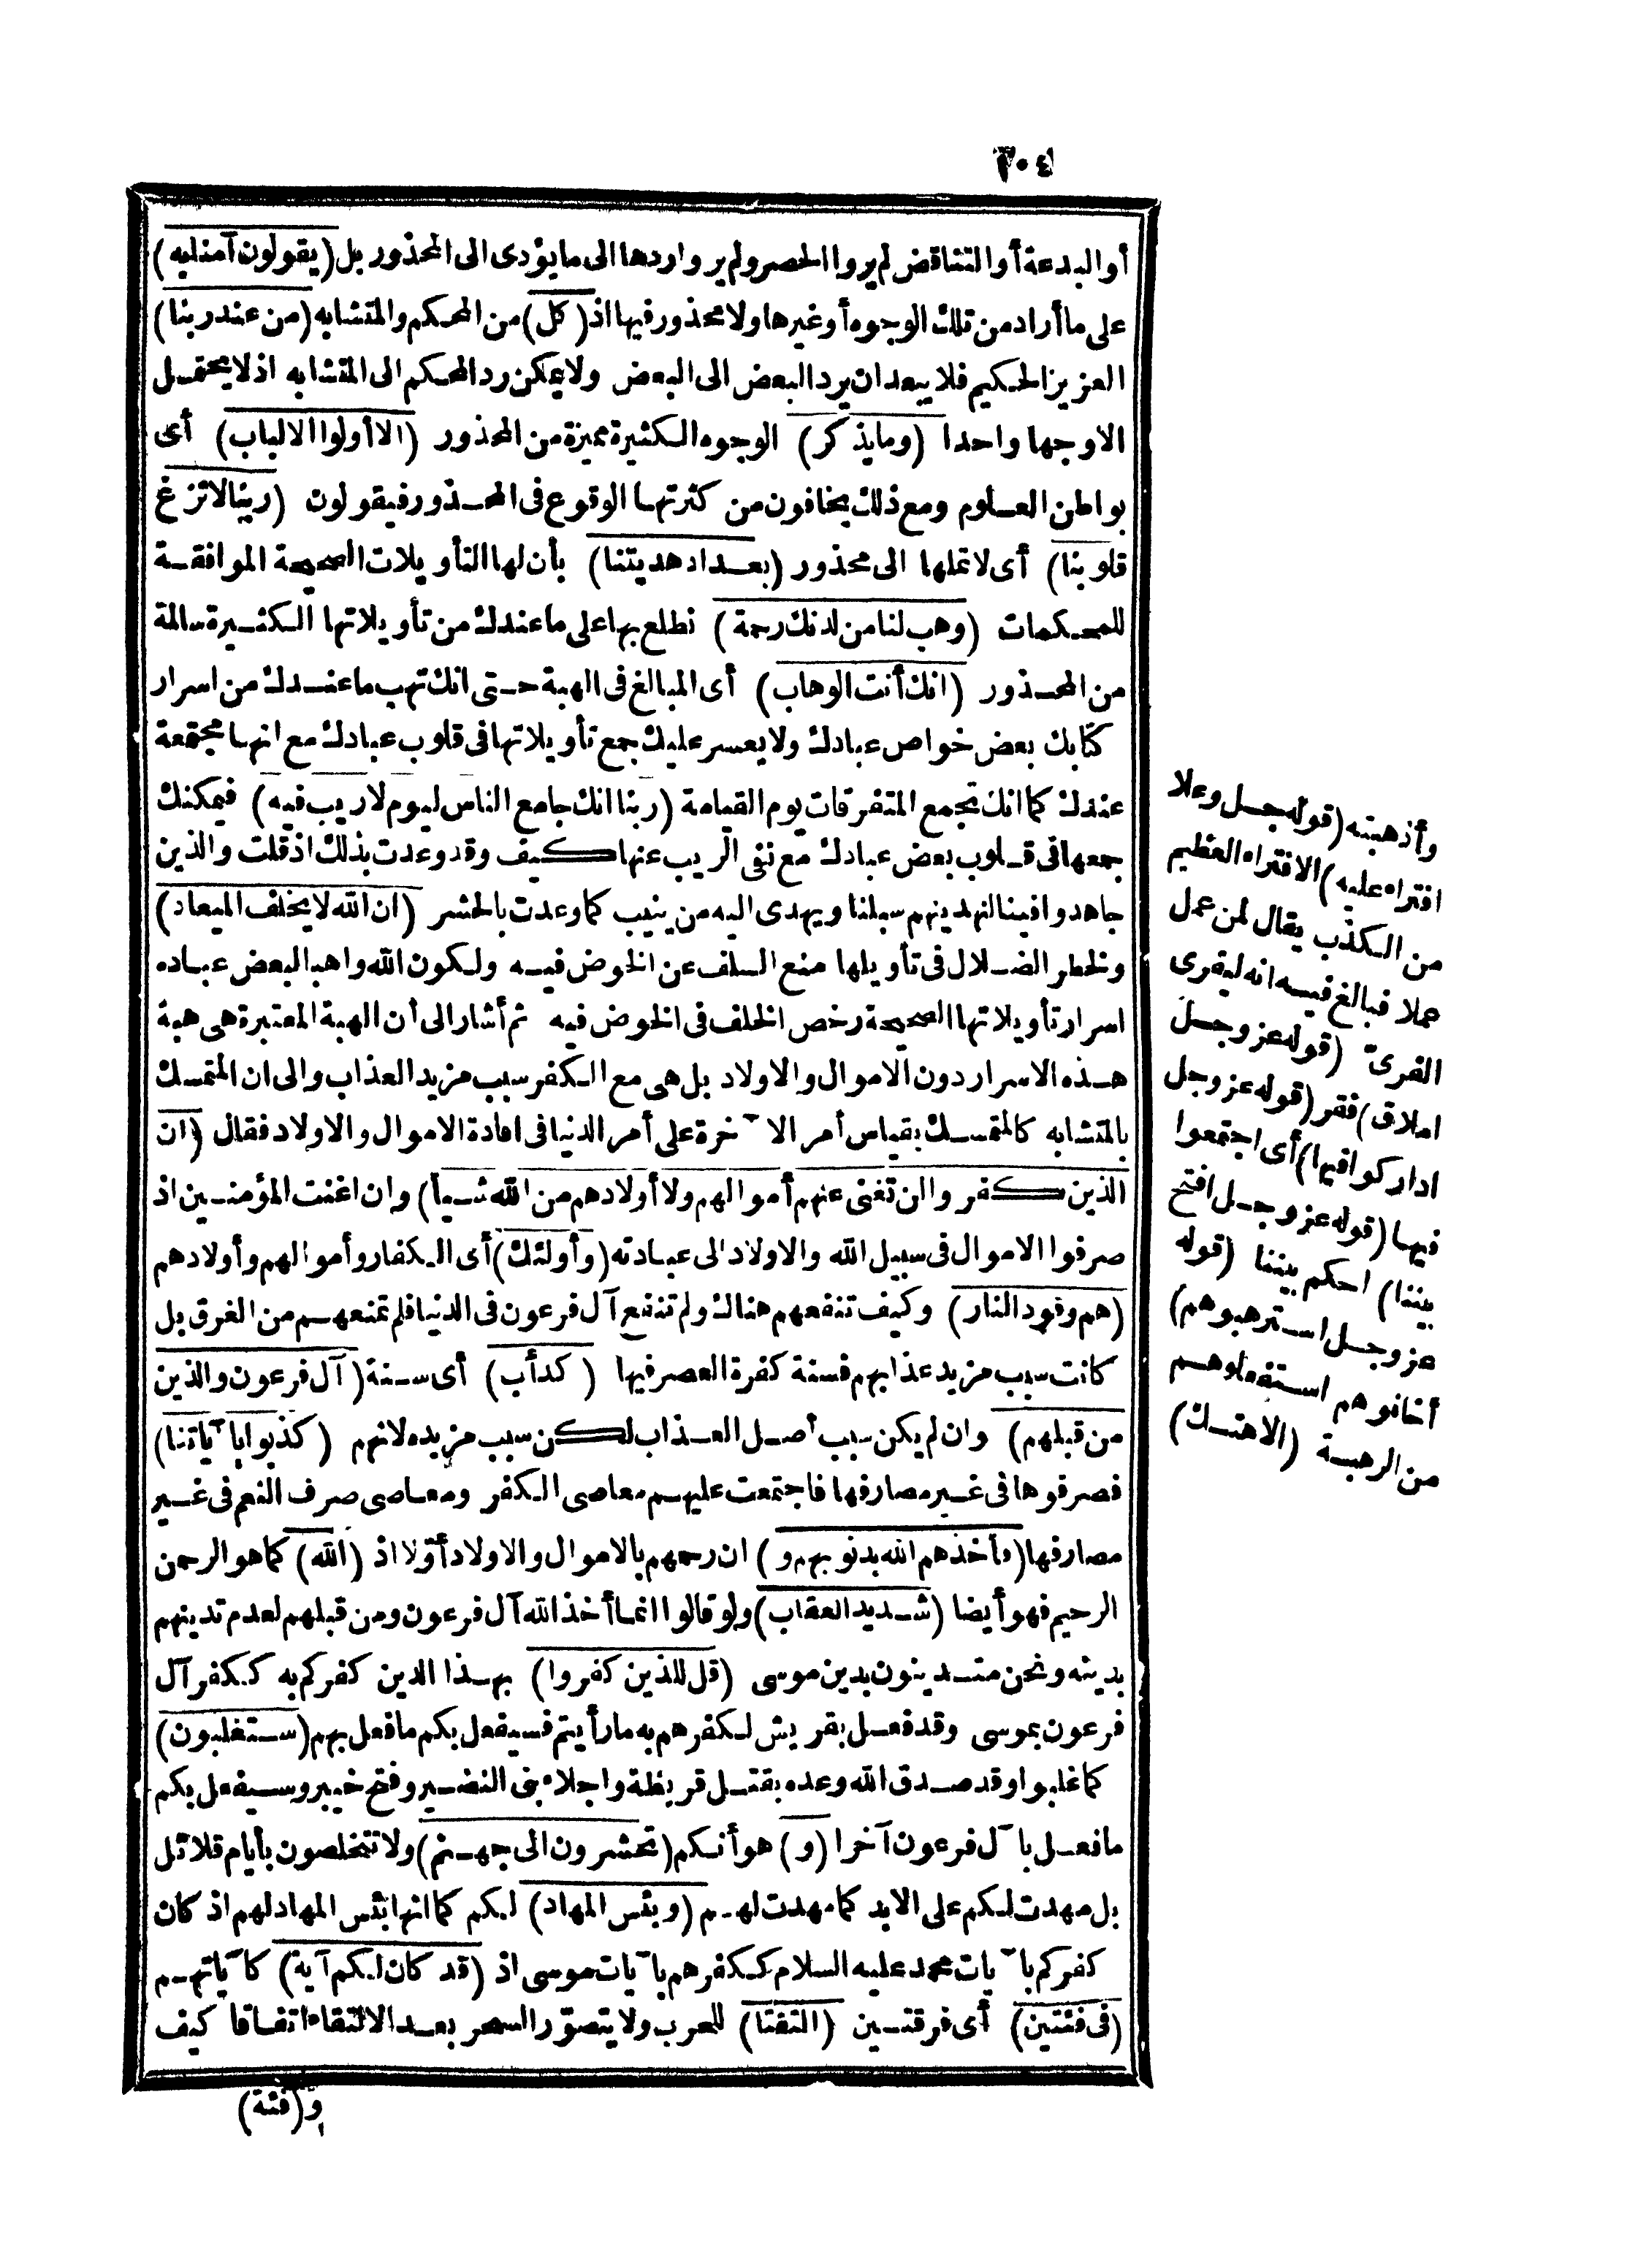 ١٠٤
أو البدعة أو التناقض لم يروا الحصر ولم يروا ردها الى ما يؤدى الى المحذور بل (يقولون آمنا به)
على ما أراد من تلك الوجوه أو غيرها ولا محذور فيها اذ (كل) من المحكم والمتشابه (من عند ربنا)
العزيز الحكيم فلا يبعد ان يرد البعض الى البعض ولا يمكن رد المحكم الى المتشابه اذ لا يحتمل
الا وجها واحدا (وما يذكر) الوجوه الكثيرة مميزة من المحذور (الا أولوا الالباب) أى
بواطن العلوم ومع ذلك يخافون من كثرتها الوقوع فى المحذور فيقولون (ربنا لا تزغ
قلوبنا) أى لا تملها الى محذور (بعد اذ هديتنا) بأن لها التأويلات الصحيحة الموافقة
للمحكمات (وهب لنا من لدنك رحمة) نطلع بها على ما عندك من تأويلاتها الكثيرة سالمة
من المحذور (انك أنت الوهاب) أى المبالغ فى الهبة حتى انك تهب ما عندك من اسرار
كتابك بعض خواص عبادك ولا يعسر عليك جمع تأويلاتها فى قلوب عبادك مع انها مجتمعة
عندك كما انك تجمع المتفرقات يوم القيامة (ربنا انك جامع الناس ليوم لا ريب فيه) فيمكنك
جمعها فى قلوب بعض عبادك مع نفى الريب عنها كيف وقد وعدت بذلك اذ قلت والذين
جاهدوا فينا لنهدينهم سبلنا ويهدى اليه من ينيب كما وعدت بالحشر (ان الله لا يخلف الميعاد)
ولخطر الضلال فى تأويلها منع السلف عن الخوض فيه ولكون الله واهبا لبعض عباده
اسرار تأويلاتها الصحيحة رخص الخلف فى الخوض فيه ثم أشار الى أن الهبة المعتبرة هى هبة
هذه الاسرار دون الاموال والاولاد بل هى مع الكفر سبب مزيد العذاب والى ان المتمسك
بالمتشابه كالمتمسك بقياس أمر الآخرة على أمر الدنيا فى افادة الاموال والاولاد فقال (ان
الذين كفروا لن تغنى عنهم أموالهم ولا أولادهم من الله شيأ) وان اغنت المؤمنين اذ
صرفوا الاموال فى سبيل الله والاولاد الى عبادته (وأولئك) أى الكفار وأموالهم وأولادهم
(هم وقود النار) وكيف تنفعهم هناك ولم تنفع آل فرعون فى الدنيا فلم تمنعهم من الغرق بل
كانت سبب مزيد عذابهم فسنة كفرة العصر فيها (كدأب) أى سنة (آل فرعون والذين
من قبلهم) وان لم يكن سبب أصل العذاب لكن سبب مزيده لانهم (كذبوا بآياتنا)
فصرفوها فى غير مصارفها فاجتمعت عليهم معاصى الكفر ومعاصى صرف النعم فى غير
مصارفها (فأخذهم الله بذنوبهم و) ان رحمهم بالاموال والاولاد أولا اذ (الله) كما هو الرحمن
الرحيم فهو أيضا (شديد العقاب) ولو قالوا انما أخذ الله آل فرعون ومن قبلهم لعدم تدينهم
بدينه ونحن متدينون بدين موسى (قل للذين كفروا) بهذا الدين كفركم به ككفر آل
فرعون بموسى وقد فعل بقريش لكفرهم به ما رأيتم فسيفعل بكم ما فعل بهم (ستغلبون)
كما غلبوا وقد صدق الله وعده بقتل قريظة واجلاء بنى النضير وفتح خيبر وسيفعل بكم
ما فعل بآل فرعون آخرا (و) هو أنكم (تحشرون الى جهنم) ولا تتخلصون بأيام قلائل
بل مهدت لكم على الابد كما مهدت لهم (وبئس المهاد) لكم كما انها بئس المهاد لهم اذ كان
كفركم بآيات محمد عليه السلام ككفرهم بآيات موسى اذ (قد كان لكم آية) كآياتهم
(فى فئتين) أى فرقتين (التقتا) للحرب ولا يتصور السحر بعد الالتقاء اتفاقا كيف
و(فئة)
وأذهبته (قوله جل وعلا
افتراء عليه) الافتراء العظيم
من الكذب يقال لمن عمل
عملا فبالغ فيه انه ليفرى
الفرىّ (قوله عز وجل
املاق) فقر (قوله عز وجل
اداركوا فيها) أى اجتمعوا
فيها (قوله عز وجل افتح
بيننا) احكم بيننا (قوله
عز وجل استرهبوهم)
أخافوهم استفعلوهم
من الرهبة (الاهتك)